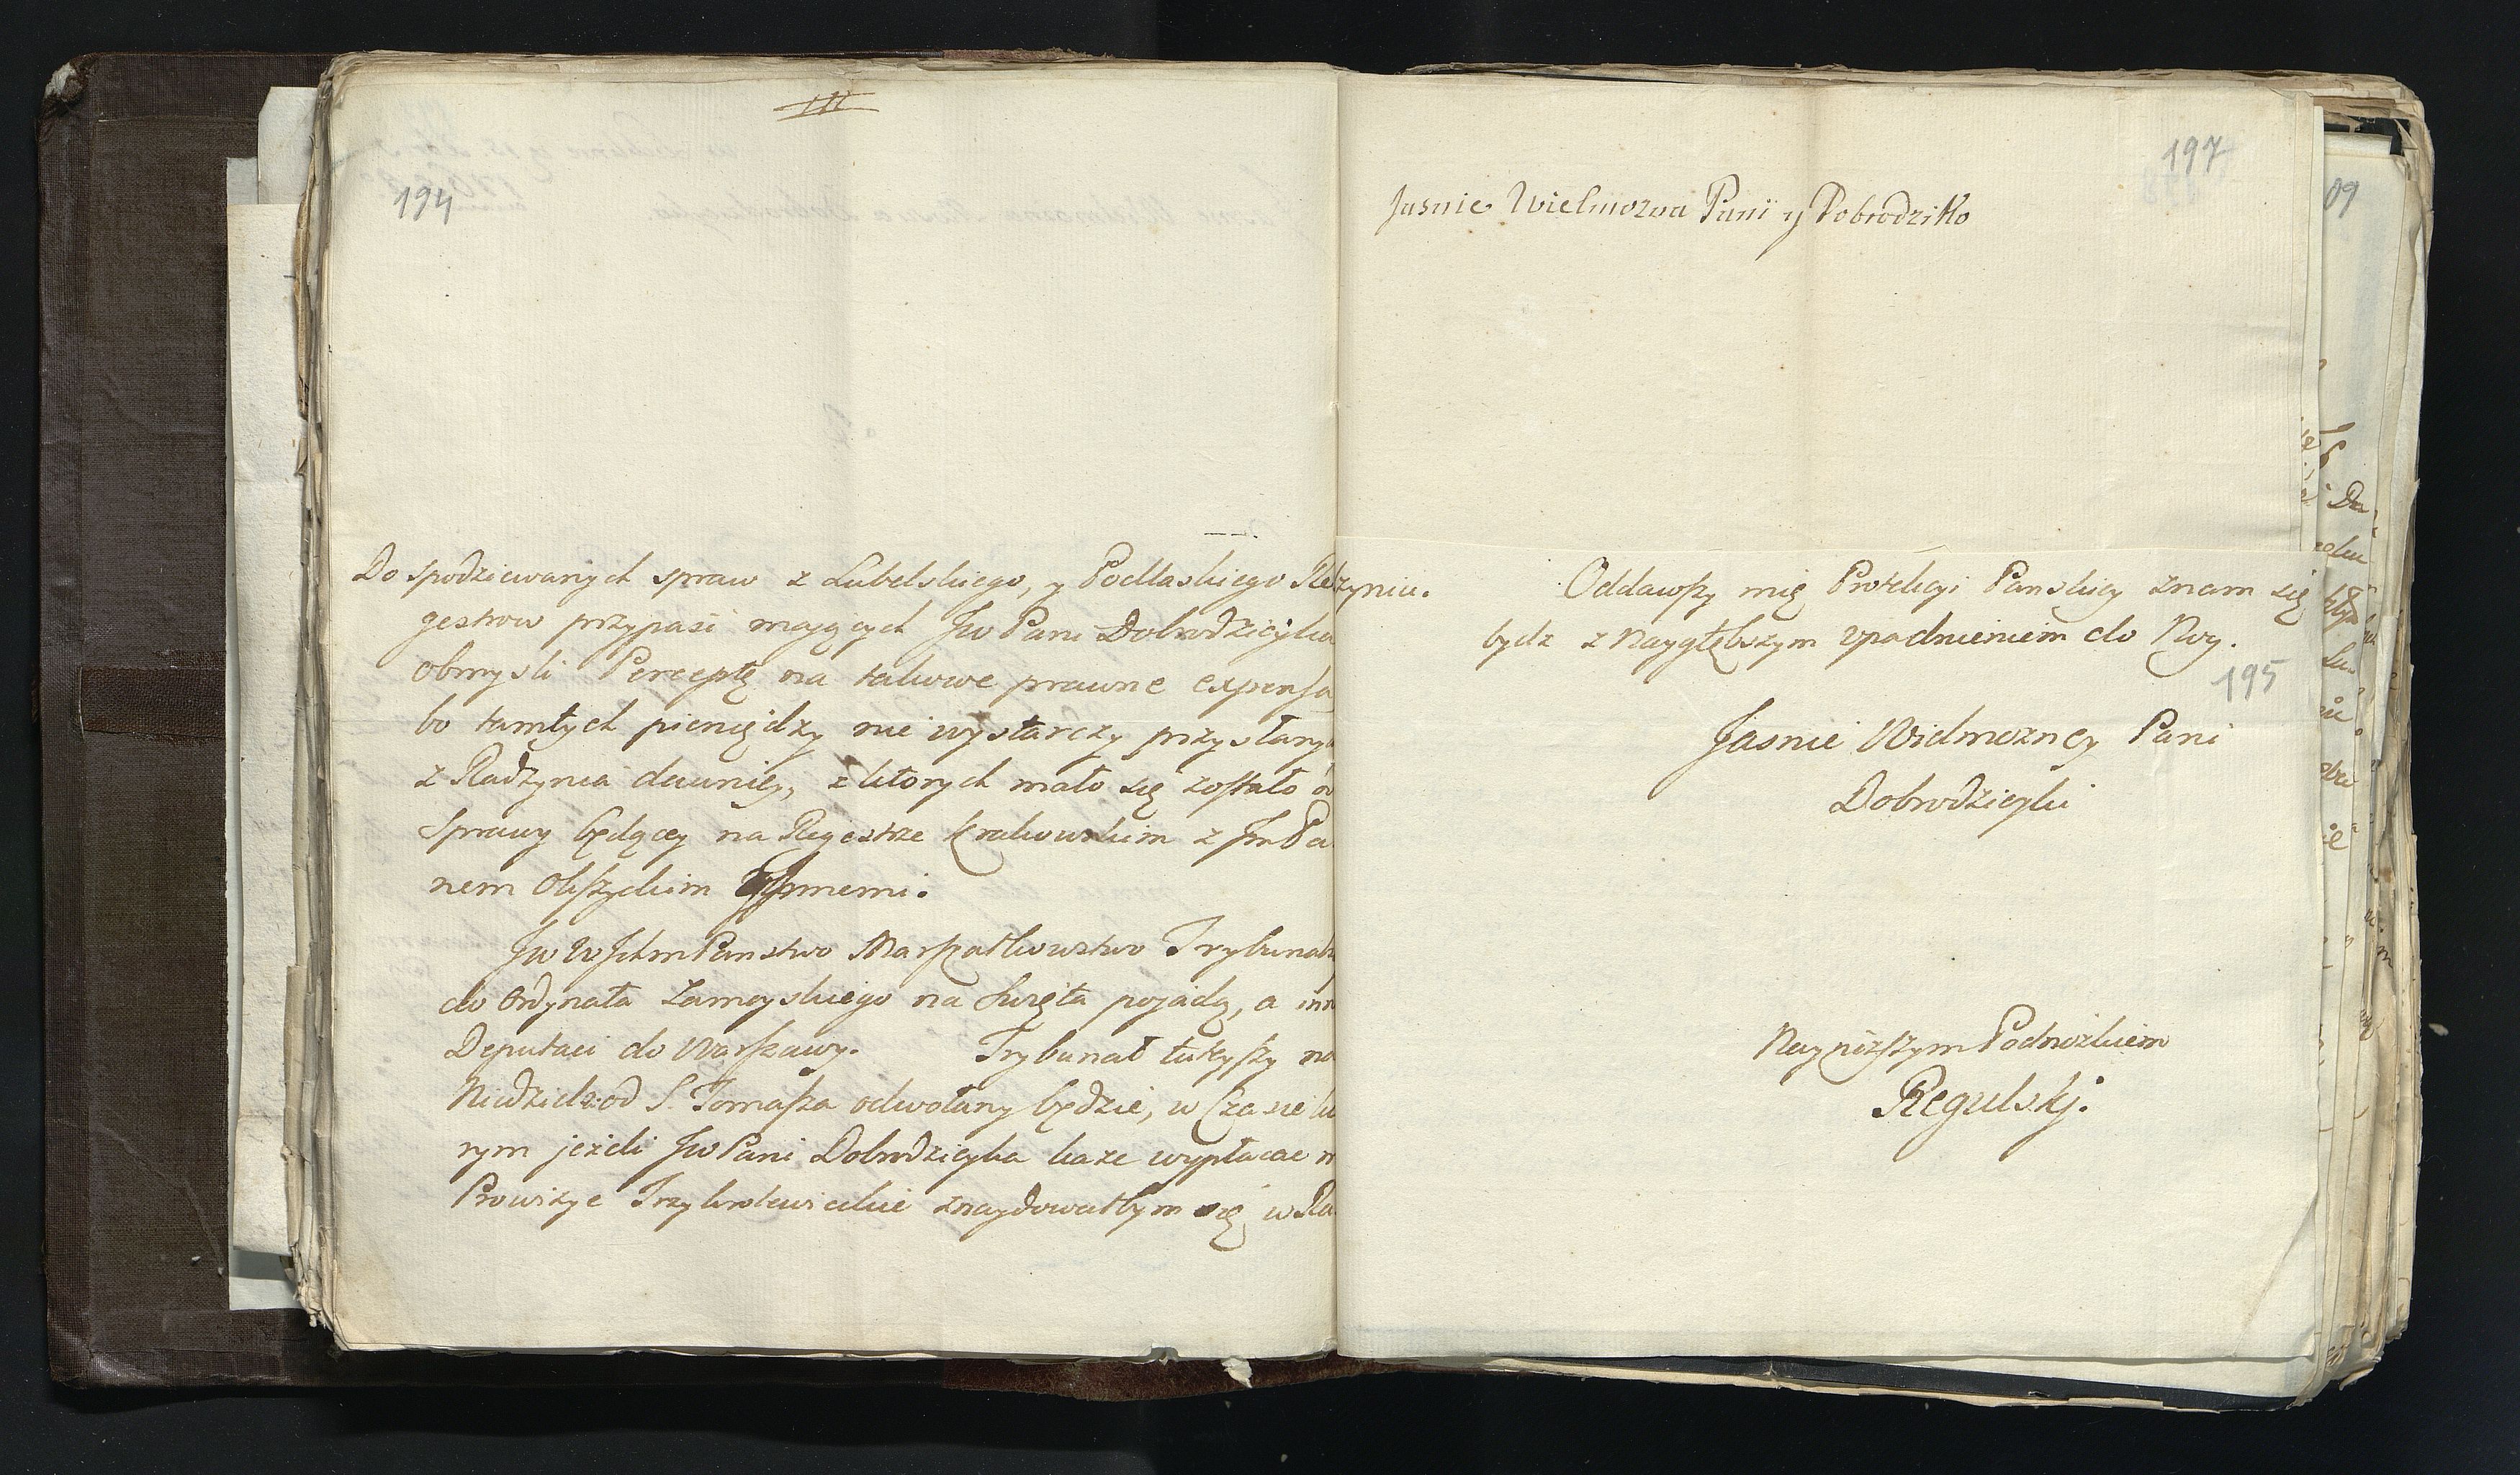 III
194
Do spodziewanych spraw z Lubelskiego, y Podlaskiego Re
gestrow przypaść maiących Jw Pani Dobrodzieyka
obmysli Perceptę na takowe prawne expensa
bo tamtych pieniędzy nie wystarczy przysłany
z Radzynia dawniey, z ktorych mało się zostało
Sprawy będącey na Regestrze Krakowskim z JmPa
nem
Jw WJchmPanstwo Marszałkowstwo Trybunal
do Ordynata Zamoyskiego na Święta pojadą, a inn
Deputaci do Warszawy. Trybunał tuteyszy na
Niedziel: od S. Tomasza odwołany będzie, w Czasie
rym jeżeli Jw Pani Dobrodzieyka każe wypłacac
Prowizye znaydowałbym się w Ra
197
Jasnie Wielmozna Pani y Dobrodziko
zyniu. Oddawszy mię Protekcyi Panskiey znam się
bydz z naygłębszym vpadnieniem do Nog.
195
Jasnie Wielmozney Pani
Dobrodzieyki
Nayniższym Podnożkiem
Regulskj.
09